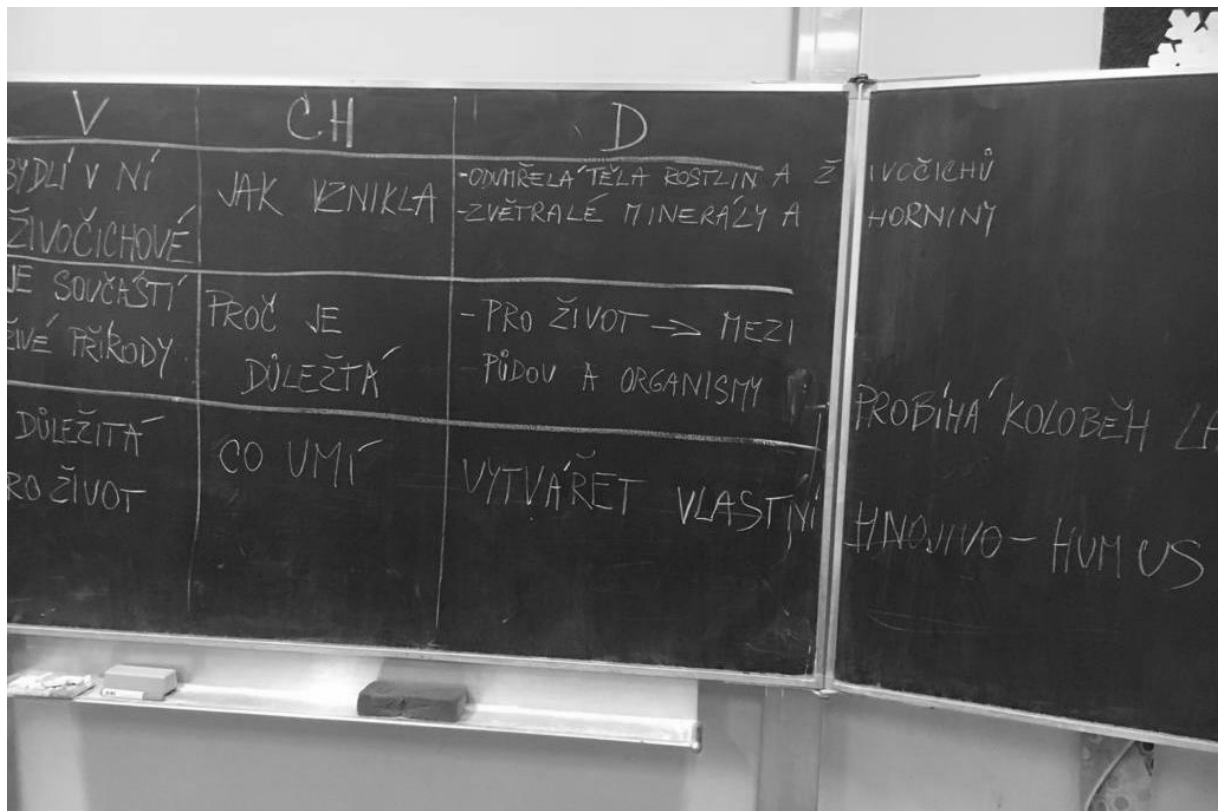 V CH D
BYDLÍ V NÍ
ŽIVOČICHOVÉ
JAK VZNIKLA
-ODUMŘELÁ TĚLA ROSTLIN A ŽIVOČICHŮ
-ZVĚTRALÉ MINERÁLY A HORNINY
JE SOUČÁSTÍ
ŽIVÉ PŘÍRODY
PROČ JE
DŮLEŽTÁ
- PRO ŽIVOT -> MEZI
PŮDOU A ORGANISMY
PROBÍHÁ KOLOBĚH
DŮLEŽITÁ
PRO ŽIVOT
CO UMÍ
VYTVÁŘET VLASTNÍ HNOJIVO - HUMUS